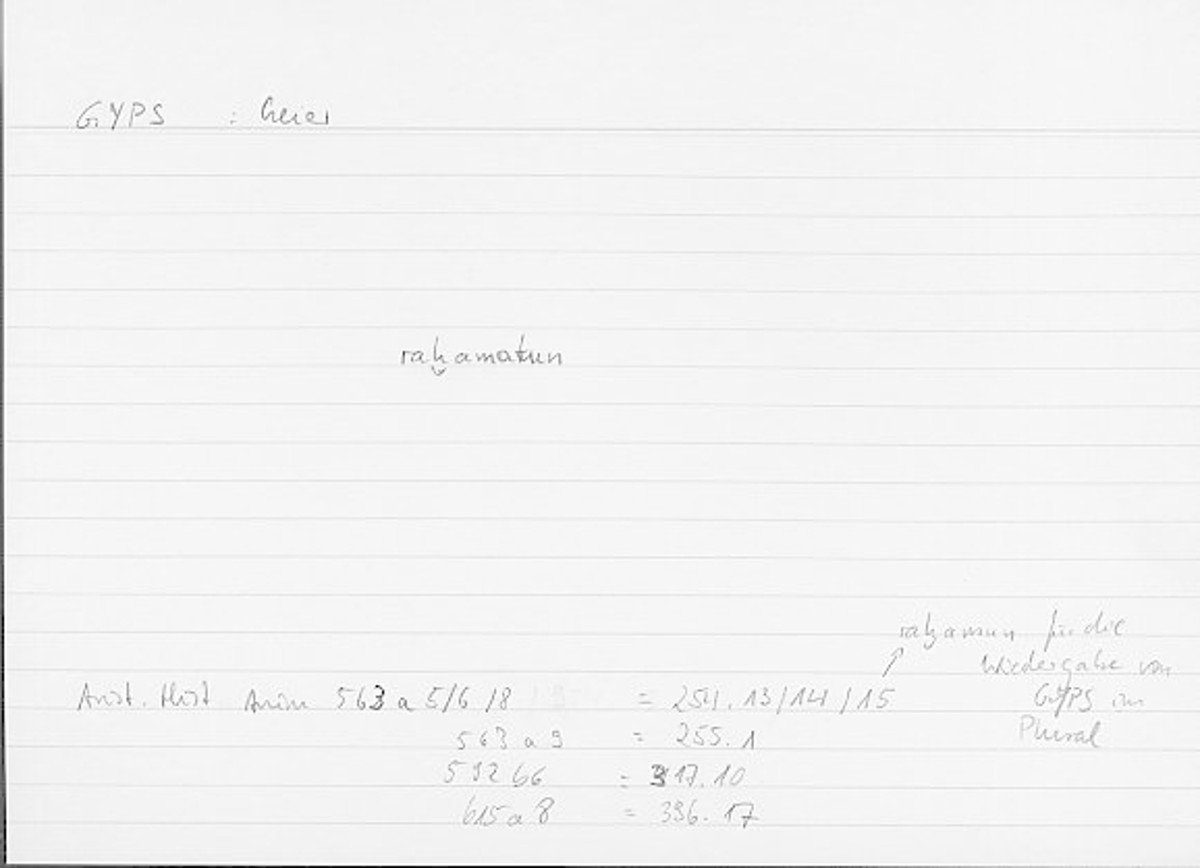 GYPS : Geier
raḫamatun
raḫamun für die
Wiedergabe von
Arist. Hist Anim 563 a 5/6/8 = 254.13/14/15 GYPS im
Plural
563 a 9 = 255.1
592 b6 = 317.10
615 a 8 = 396.17